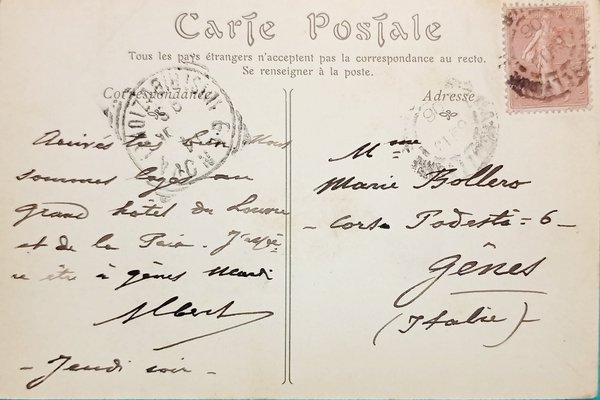 Carte Postale
Tous les pays étrangers n'acceptent pas la correspondance au recto.
Se renseigner à la poste.
Correspondance
Arrivés très bien. Nous
sommes logés au
grand hôtel du Louvre
et de la Paix. J'espè=
re être à gênes Mardi
Albert
- Jeudi soir -
Adresse
Mme
Marie Bollero
- Corso Podestà = 6 -
Gênes
(Italie)